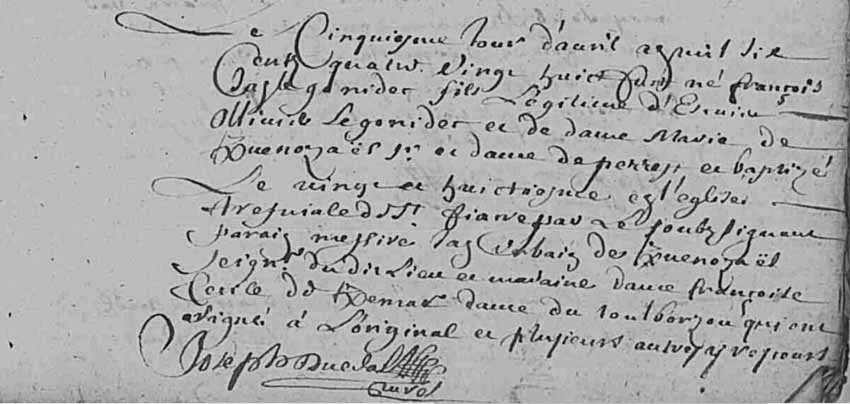 Le Cinquiesme Jour d'auril Mil six
Cents quatre Vingt huict fust né françois
Jasle gonidec fils Légitime d'Escuier
Ollivier Legonidec et de dame Marie de
Quenozaël sr et dame de perros et baptizé
Le vingt et huictiesme en l'eglise
treviale dist pierre par Le soubsignant
Parain messire Jas urbain de Quenozaël
Seigr du dit Lieu et maraine dame françoise
dame du toulborzou qui ont
a signé à L'original et plusieurs autres
Joseph
curé